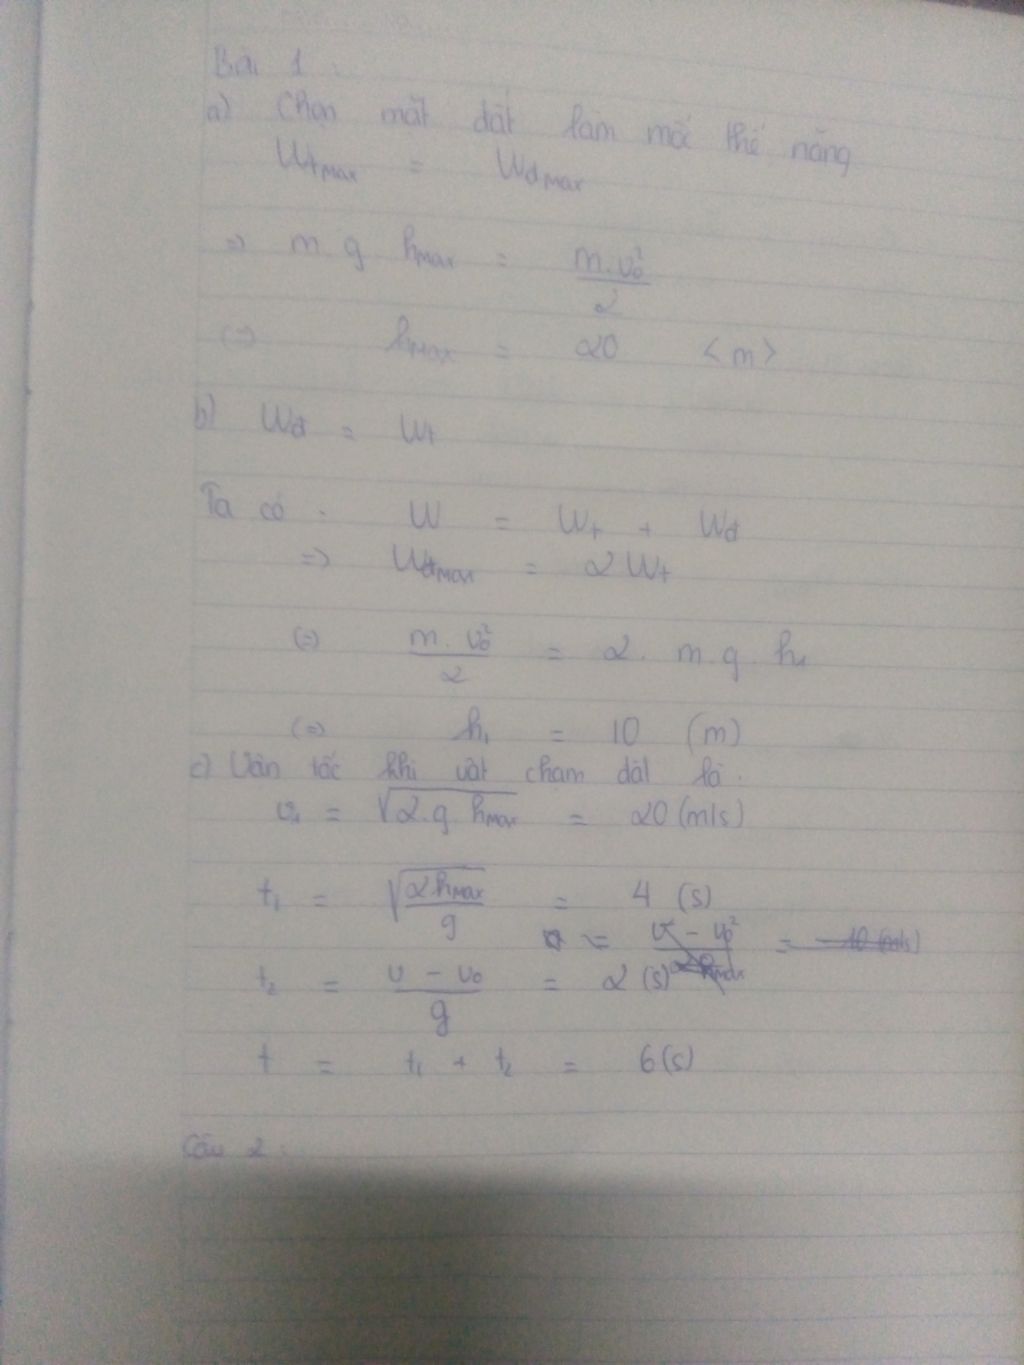 Bài 1 :
a) Chọn mặt đất làm mốc thế năng
Wtmax = Wđmax
=> m.g.hmax = m.v₀²/2
<=> hmax = 20 <m>
b) Wđ = Wt
Ta có : W = Wt + Wđ
=> Wđmax = 2Wt
<=> m.v₀²/2 = 2.m.g.h₁
<=> h₁ = 10 (m)
c) Vân tốc khi vật chạm đất là :
= √2.g.hmax = 20 (m/s)
t₁ = √2hmax/g = 4 (s)
t₂ = v - v₀/g = 2 (s)
t = t₁ + t₂ = 6(s)
Câu 2 :